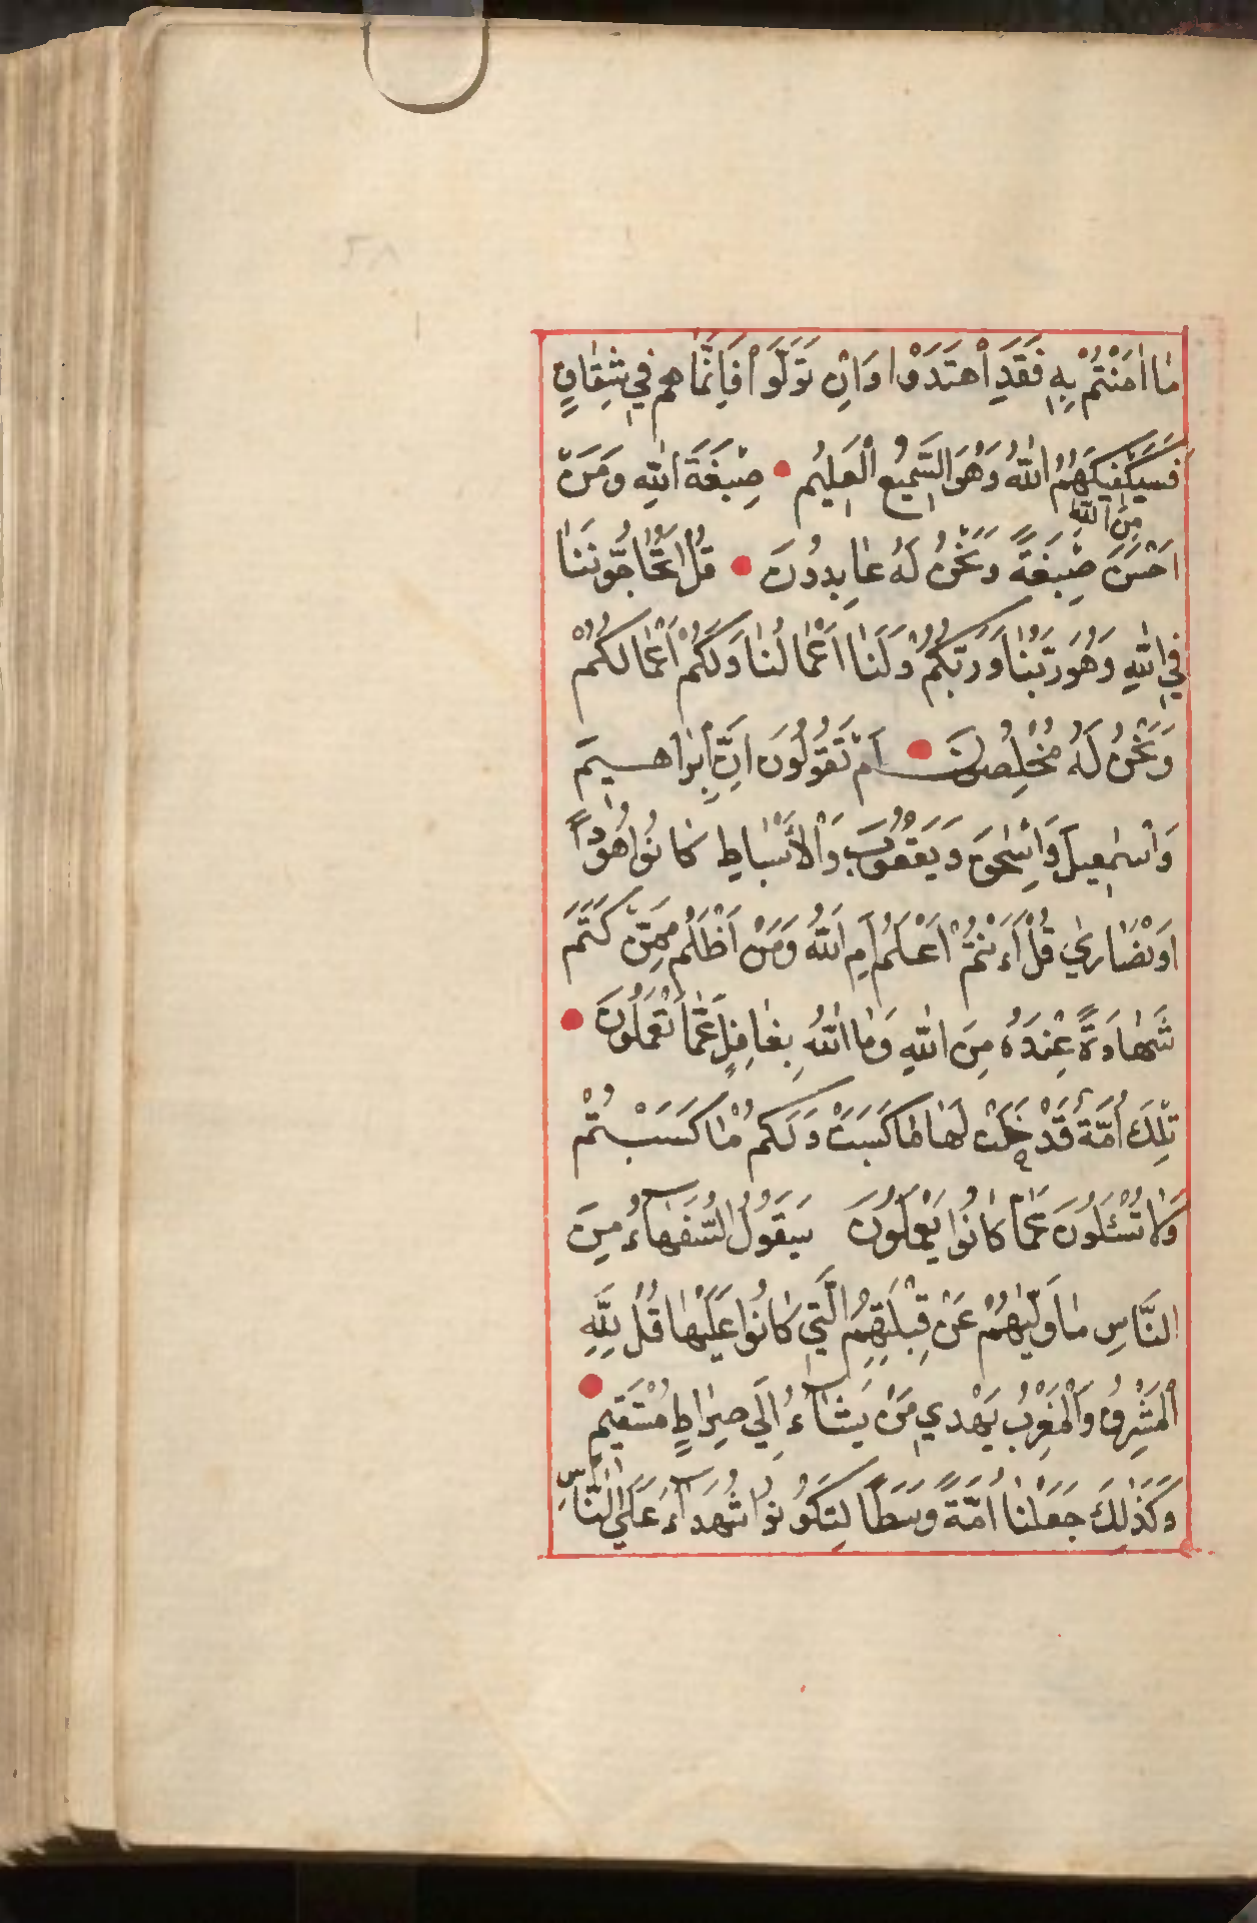 ٥٨
مَا اٰمَنْتُمْ بِهٖ فَقَدِ اْهتَدَوْا وَاِنْ تَوَلَّوَاْ فَاِنَّمَا هم فِي شِقَاقٍ
فَسَيَكْفِيكَهُمُ اللّٰهُ وَهُوَ السَّمِيعُ الْعَلِيُم صِبْغَةَ اللّٰهِ وَمَنْ
مِنَ اللّٰهِ
اَحْسَنَ صِبْغَةً وَنَحْنُ لَهُ عَابِدُونَ قُلْ اَتُحَاجُّونَنَا
فِي اللّٰهِ وَهُوَ رَبُّنَا وَرَبُّكُمْ وَلَنَا اَعْمَالُنَا وَلَكُمْ اَعْمَالكُمْ
وَنَحْنُ لَهُ مُخْلِصُونَ اَمْ تَقُولُونَ اِنَّ اِبْرَاهِيمَ
وَاسْمٰعِيلَ وَاِسْحٰقَ وَيَعْقُوبَ وَالْاَسْبَاطِ كَانُوا هُودًا
اَوْ نَصَارٰي قُلْ ءَاَنْتُمْ اَعْلَمُ اَمِ اللّٰهُ وَمَنْ اَظْلَمُ مِمَّنْ كَتَمَ
شَهَادَةً عِنْدَهُ مِنَ اللّٰهِ وَمَا اللّٰهُ بِغَافِلٍ عَمَّا تَعْمَلُونَ
تِلْكَ اُمَّةٌ قَدْ خَلَتْ لَهَا مَا كَسَبَتْ وَلَكمْ مَا كَسَبْتُمْ
وَلَا تُسْئَلُونَ عَمَّا كَانُوا يَعْمَلُونَ سَيَقُولُ السُّفَهَاءُ مِنَ
النَّاسِ مَا وَلّٰيهُمْ عَنْ قِبْلَتِهِمُ الَّتِي كَانُوا عَلَيْهَا قُلْ لِلَّهِ
الْمَشْرِقُ وَالْمَغْرِبُ يَهْدِي مَنْ يَشَاءُ اِلَي صِرَاطٍ مُسْتَقِيمٍ
وَكَذٰلِكَ جَعَلْنَا اُمَّةً وَسَطًا لِتَكُونُوا شُهَدَاءَ عَلَي النَّاسِ